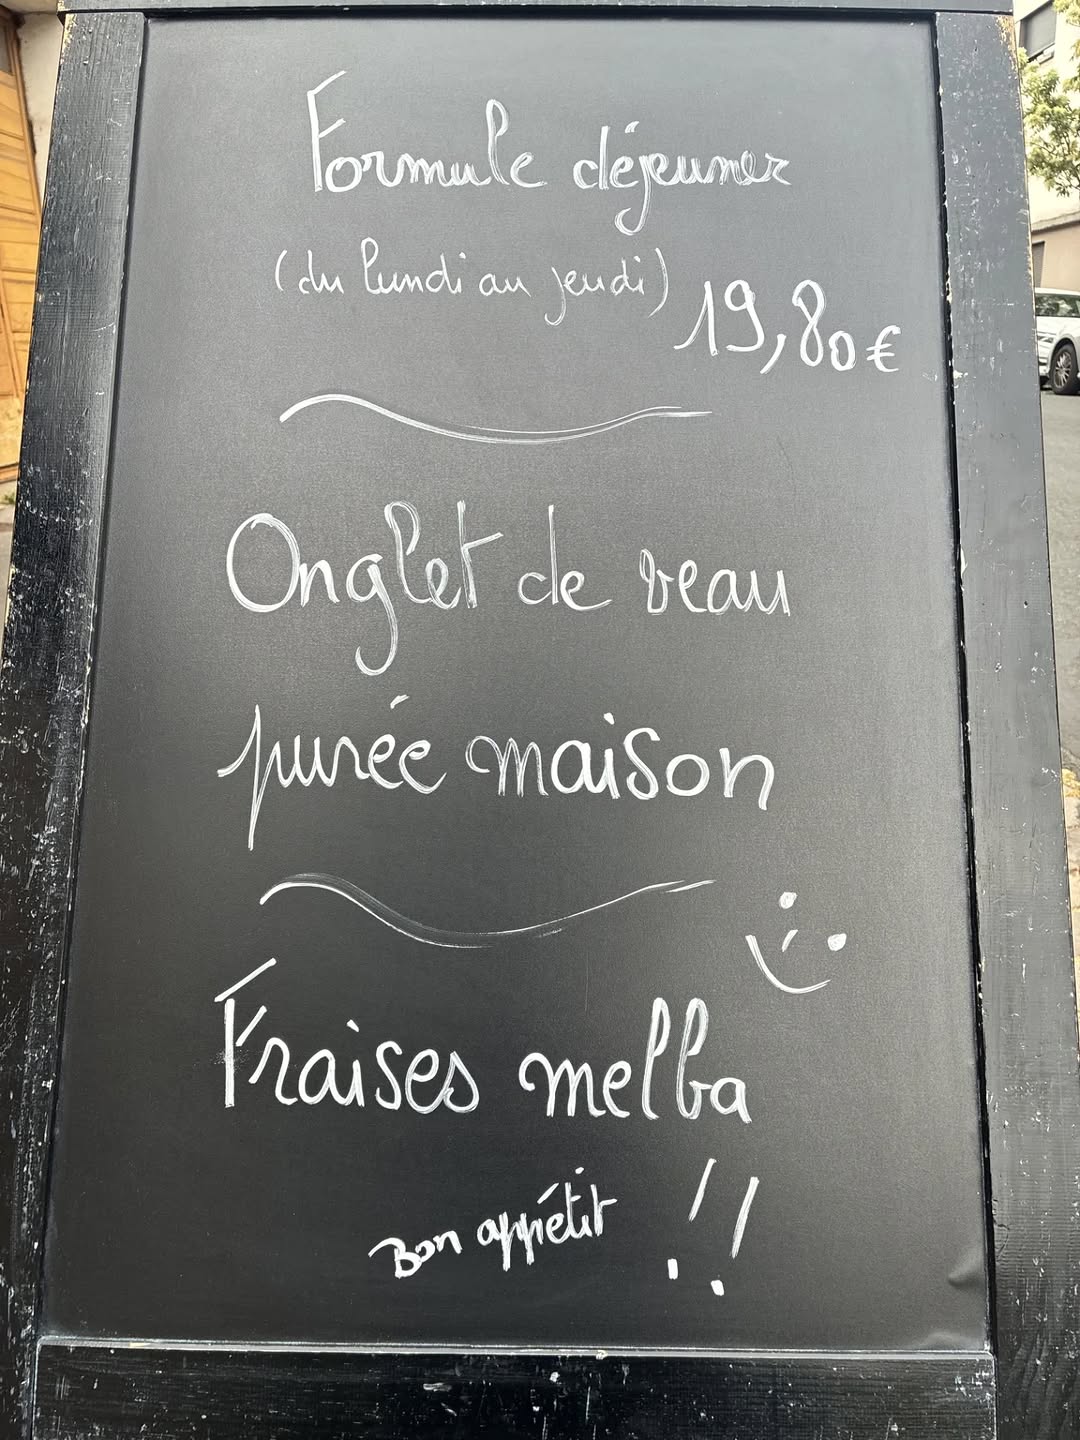 Formule déjeuner
(du lundi au jeudi) 19,80€
Onglet de veau
purée maison
Fraises melba
Bon appétit !!